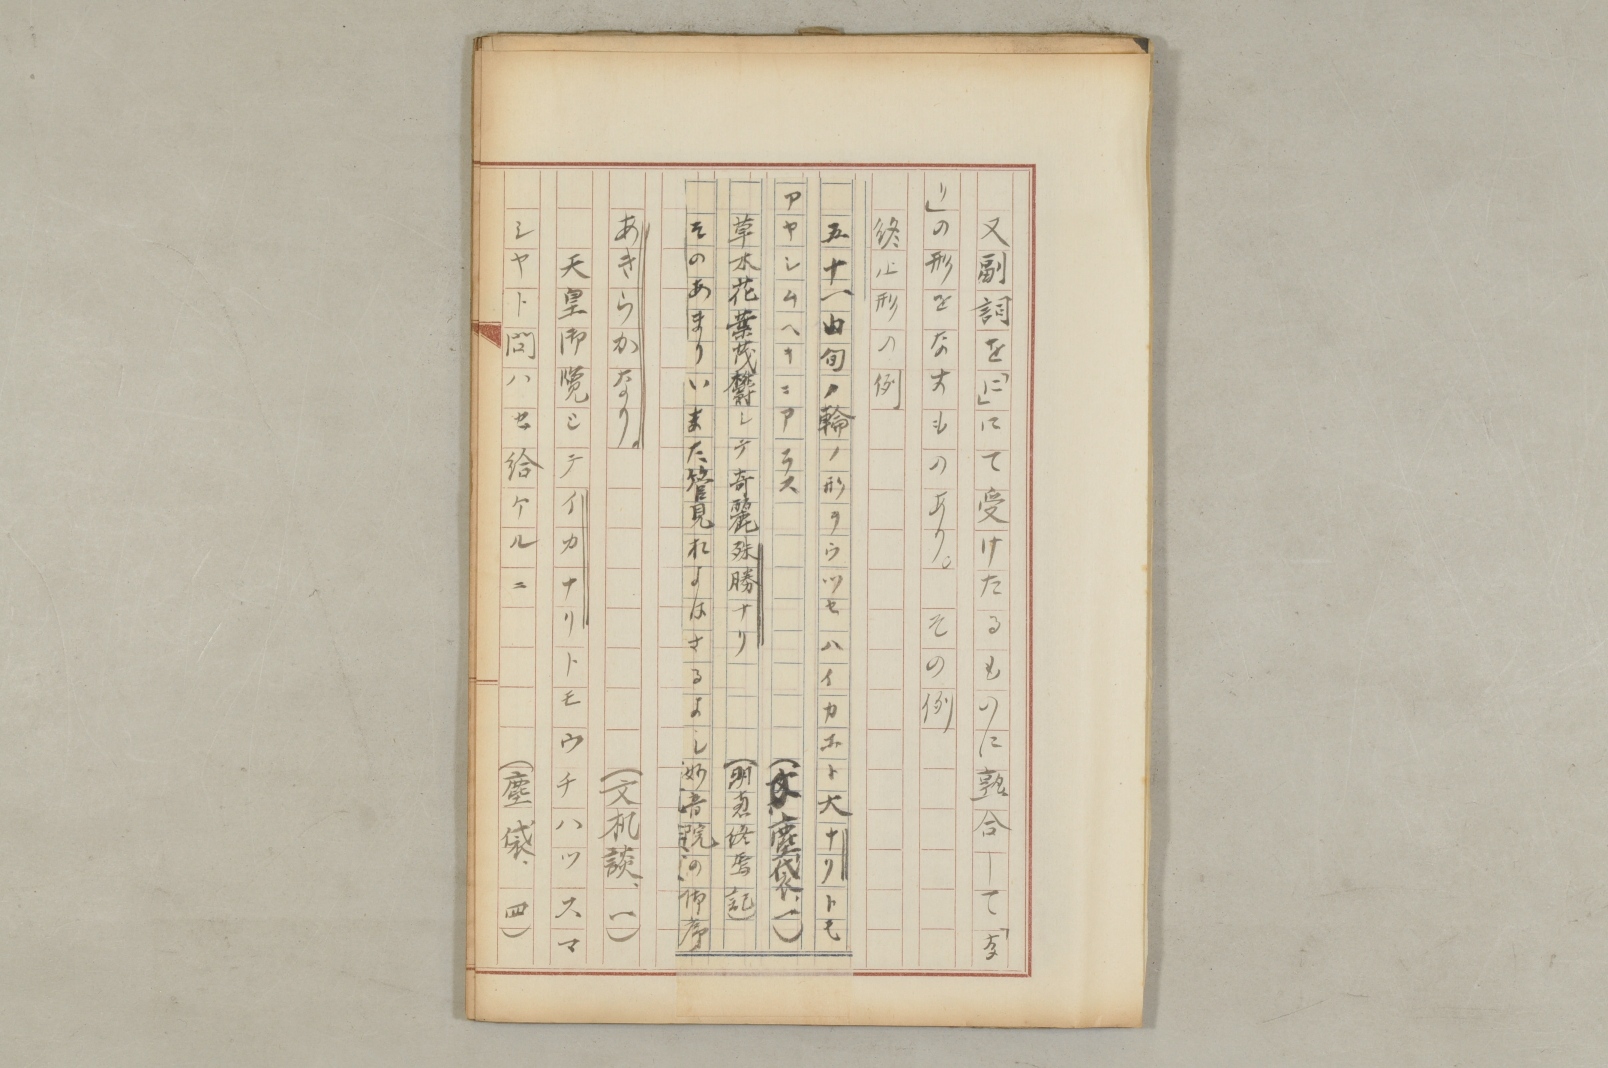 又副詞を「に」にて受けたるものに熟合して「な
り」の形をなすものあり。その例
終止形の例
五十一由旬ノ輪ノ形ヲウツセハイカホト大ナリトモ
アヤシムヘキニアラス (塵袋、一)
草木花葉茂欝シテ奇麗殊勝ナリ (明恵終焉記)
そのあまりいまた管見におよはさるよし妙音院の御序
あきらかなり。 (文机談、一)
天皇御覧シテイカナリトモウチハツスマ
シヤト問ハセ給ケルニ (塵袋、四)